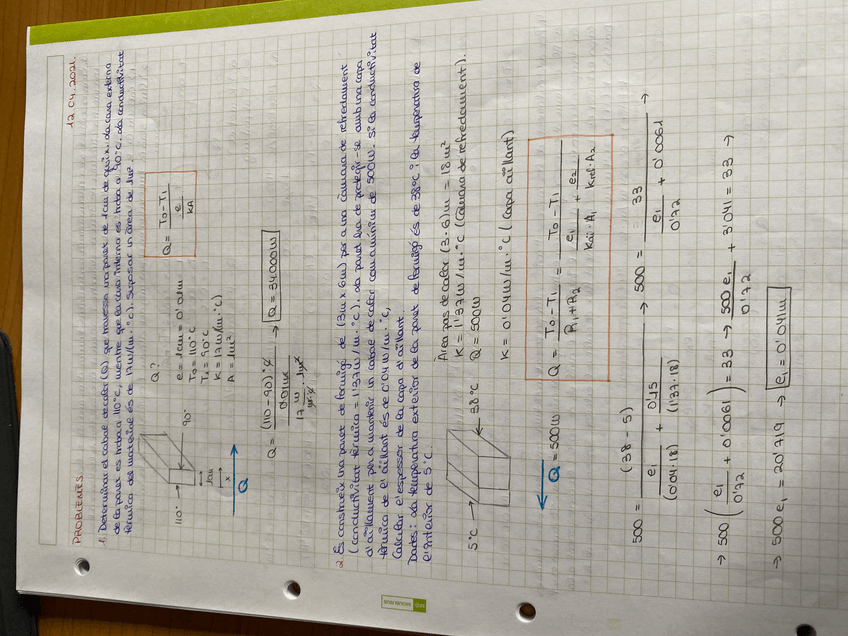 PROBLEMES
12.04.2021.
1. Determinar el cabal de calor (Q) que travessa una paret de 1cm de gruix. La cara externa
de la paret es troba a 110°C, mentre que la cara interna es troba a 90°C. La conductivitat
tèrmica del material és de 17W/(m·°C). Suposar un àrea de 1m².
110°
90°
1cm
x
Q
Q?
e = 1cm = 0'01m
T₀ = 110°C
T₁ = 90°C
K = 17W/(m·°C)
A = 1m²
Q = T₀ - T₁ / e / KA
Q = (110-90)°C / 0'01m / 17 W/m·°C · 1m² → Q = 34000W
2. Es construeix una paret de formigó de (3m x 6m) per a una càmara de refredament
(conductivitat tèrmica = 1'37W/m·°C). La paret ha de protegir-se amb una capa
d'aïllament per a mantenir un cabal de calor com a mínim de 500W. Si la conductivitat
tèrmica de l'aïllant és de 0'04W/m·°C,
Calcular l'espessor de la capa d'aïllant.
Dades: La temperatura exterior de la paret de formigó és de 38°C i la temperatura de
l'interior de 5°C.
5°C
38°C
Q = 500W
Àrea pas de calor (3·6)m = 18m²
K = 1'37W/m·°C (càmara de refredament).
Q = 500W
K = 0'04W/m·°C (capa aïllant)
Q = T₀ - T₁ / R₁ + R₂ = T₀ - T₁ / e₁ / Kaï · A₁ + e₂ / Kref · A₂
500 = (38 - 5) / e₁ / (0'04·18) + 0'15 / (1'37·18) → 500 = 33 / e₁ / 0'72 + 0'0061 →
→ 500 ( e₁ / 0'72 + 0'0061 ) = 33 → 500 e₁ / 0'72 + 3'041 = 33 →
→ 500 e₁ = 20'719 → e₁ = 0'041m